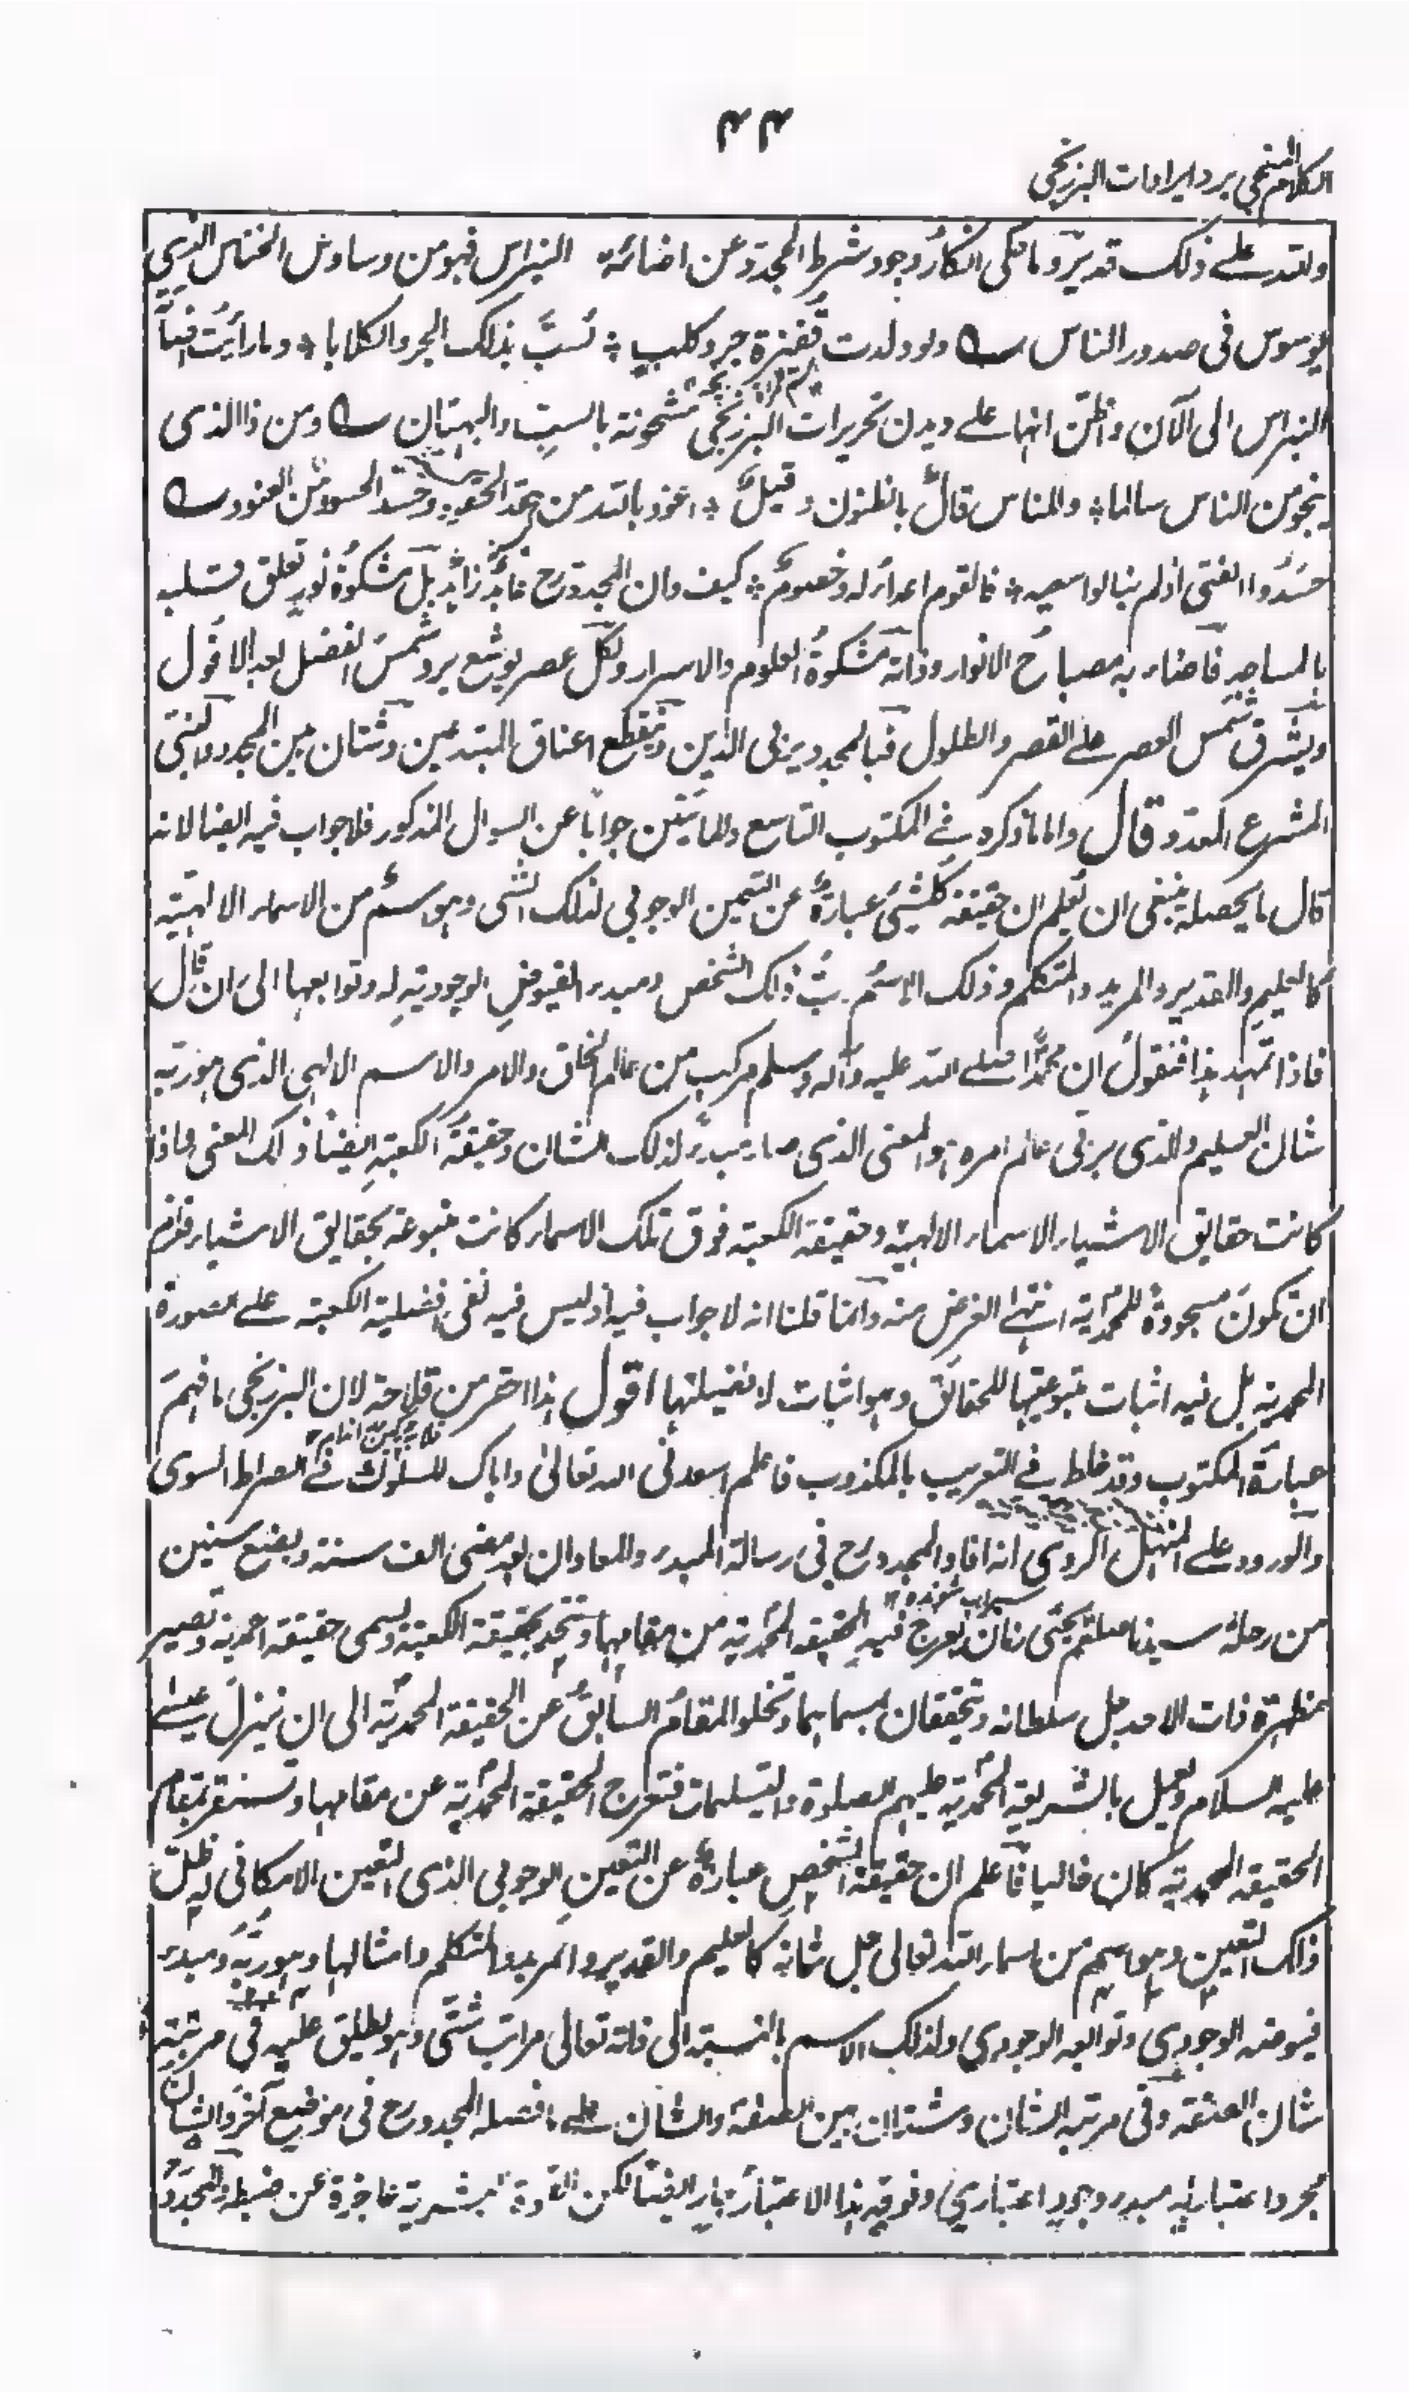 ۴۴
الكلام المنجي برد ايرادات البرزنجي
والله على ذلك قدير وما حكى انكار وجود شرط المجدد عن اضائه النبراس فهو من وساوس الخناس الذي
يوسوس في صدور الناس ولو ولدت قفيزة جرو كلب * لسب بذلك الجرو الكلابا * وما رأيت
النبراس الى الآن واظن انها على ديدن تحريرات البرزنجي مشحونة بالسب والبهتان ومن ذا الذي
ينجو من الناس سالما * وللناس قال بالظنون وقيل * اعوذ بالله من حقد الحقود وحسد الحسود من العنود
حسدوا الفتى اذ لم ينالوا سعيه * فالقوم اعداء له وخصوم * كيف وان المجدد رح عابد زاهد بل مشكوة نور تعلق قلبه
بالمساجد فاضاء به مصباح الانوار وذاته مشكوة العلوم والاسرار ولكل عصر يوشع يرد شمس الفضل بعد الافول
ويشرق شمس العصر على القصر والطلول فبالمجدد يربى الدين وينقطع اعناق المبتدعين وشتان بين المجدد
المشرع المعدد قال واما ما ذكره في المكتوب التاسع والمأتين جوابا عن السوال المذكور فلا جواب فيه ايضا لانه
قال ما يحصله ينبغي ان تعلم ان حقيقة كلشئ عبارة عن التعين الوجوبي لذلك الشئ وهو اسم من الاسماء الالهية
كالعليم والقدير والمريد والمتكلم وذلك الاسم رب ذلك الشخص ومبدء الفيوض الوجودية له وتوابعها الى ان قال
فاذا تمهد هذا فنقول ان محمدا صلى الله عليه وآله وسلم مركب من عالم الخلق والامر والاسم الالهي الذي هو ربه
شان العليم والذي يربي عالم امره هو المعنى الذي صار مبدء لذلك الشان وحقيقة الكعبة ايضا ذلك المعنى فاذا
كانت حقايق الاشياء الاسماء الالهية وحقيقة الكعبة فوق تلك الاسماء كانت متبوعة بحقايق الاشياء فلزم
ان تكون مسجودة للمحمدية انتهى الغرض منه وانما قلنا انه لا جواب فيه اذ ليس فيه نفي افضلية الكعبة على الصورة
المحمدية بل فيه اثبات متبوعيتها للحقائق وهو اثبات لا فضيلتها اقول هذا احقر من قلامة لان البرزنجي ما فهم
عبارة المكتوب وقد غلط في التعريب بالمكذوب فاعلم اسعدني الله تعالى واياك للسلوك في الصراط السوي
والورود على المنهل الروي انه افاد المجدد رح في رسالة المبدء والمعاد ان بعد مضى الف سنة وبضع سنين
من رحلة سيدنا صلعم يجئ زمان تعرج فيه الحقيقة المحمدية من مقامها وتتحد بحقيقة الكعبة وتسمى حقيقة احمدية وتصير
مظهرة ذات الاحد جل سلطانه وتتحققان بمسماهما وتخلو المقام السابق عن الحقيقة المحمدية الى ان ينزل عيسى
عليه السلام ويعمل بالشريعة المحمدية عليهم الصلوة والتسليمات فتعرج الحقيقة المحمدية عن مقامها وتستقر بمقام
الحقيقة المحمدية كان خاليا فاعلم ان حقيقة الشخص عبارة عن التعين الوجوبي الذي التعين الامكاني له ظل
ذلك التعين وهو اسم من اسماء الله تعالى جل شانه كالعليم والقدير والمريد والمتكلم وامثالها وهو ربه ومبدء
فيوضه الوجودي وتوابعه الوجودي ولذلك الاسم بالنسبة الى ذاته تعالى مراتب شتى وهو يطلق عليه في مرتبة
شان الصفة وفي مرتبة الشان وشتان بين الصفة والشان على ما فصله المجدد رح في موضع آخر والشان
مجرد اعتبار انه مبدء وجود اعتباري وفوقه هذا الاعتبار بار ايضا لكن القوة البشرية عاجزة عن ضبطه والمجدد